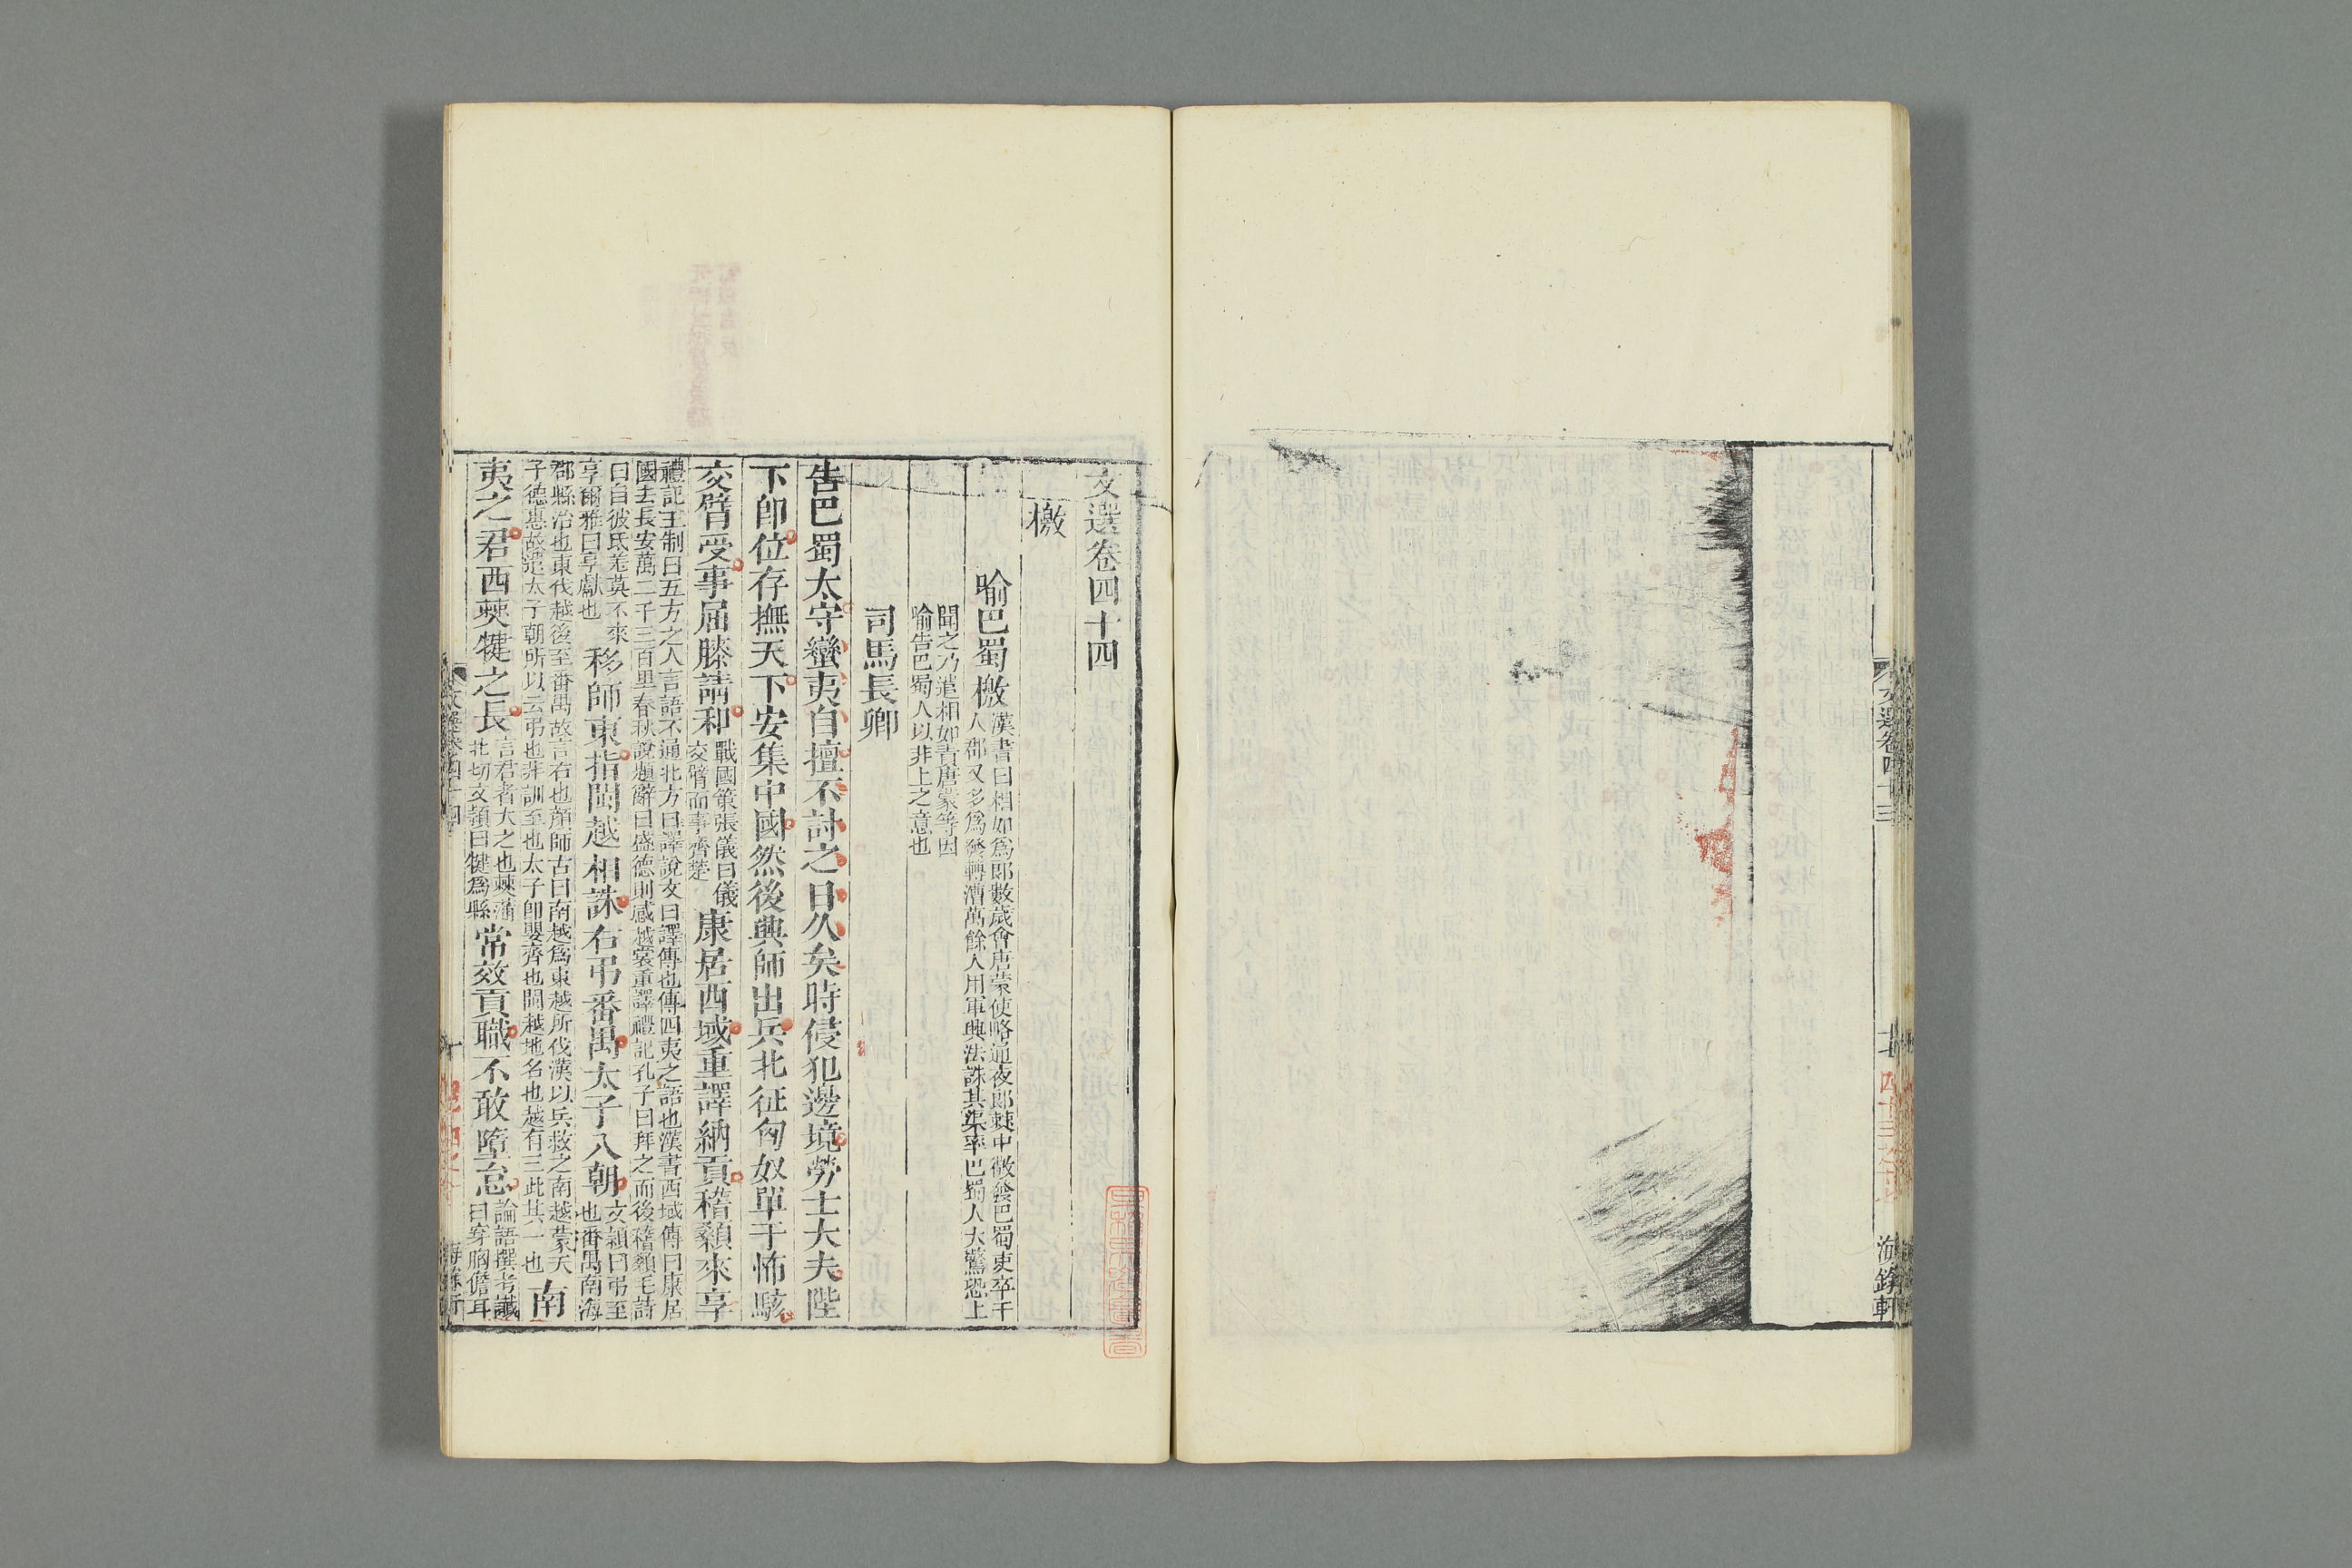 文選卷四十三
海錄軒
文選卷四十四
檄
喻巴蜀檄
漢書曰相如爲郎數歲會唐蒙使略通夜郎僰中徵發巴蜀吏卒千
人郡又多爲發轉漕萬餘人用軍興法誅其渠率巴蜀人大驚恐上
聞之乃遣相如責唐蒙等因
喻告巴蜀人以非上之意也
司馬長卿
告巴蜀太守蠻夷自擅不討之日久矣時侵犯邊境勞士大夫陛
下卽位存撫天下安集中國然後興師出兵北征匈奴單于怖駭
交臂受事屈膝請和
戰國策張儀曰儀
交臂而事齊楚
康居西域重譯納貢稽顙來享
禮記王制曰五方之人言語不通北方曰譯說文曰譯傳也傳四夷之語也漢書西域傳曰康居
國去長安萬二千三百里春秋說題辭曰盛德則感越裳重譯禮記孔子曰拜之而後稽顙毛詩
曰自彼氐羌莫不來
享爾雅曰享獻也
移師東指閩越相誅右弔番禺太子入朝
文穎曰弔至
也番禺南海
郡縣治也東伐越後至番禺故言右也顏師古曰南越爲東越所伐漢以兵救之南越蒙天
子德惠故遣太子朝所以云弔也非訓至也太子卽嬰齊也閩越地名也越有三此其一也
南
夷之君西僰犍之長
言君者大之也僰蒲
北切文穎曰犍爲縣
常效貢職不敢墮怠
論語撰考讖
曰穿胸儋耳
文選卷四十四